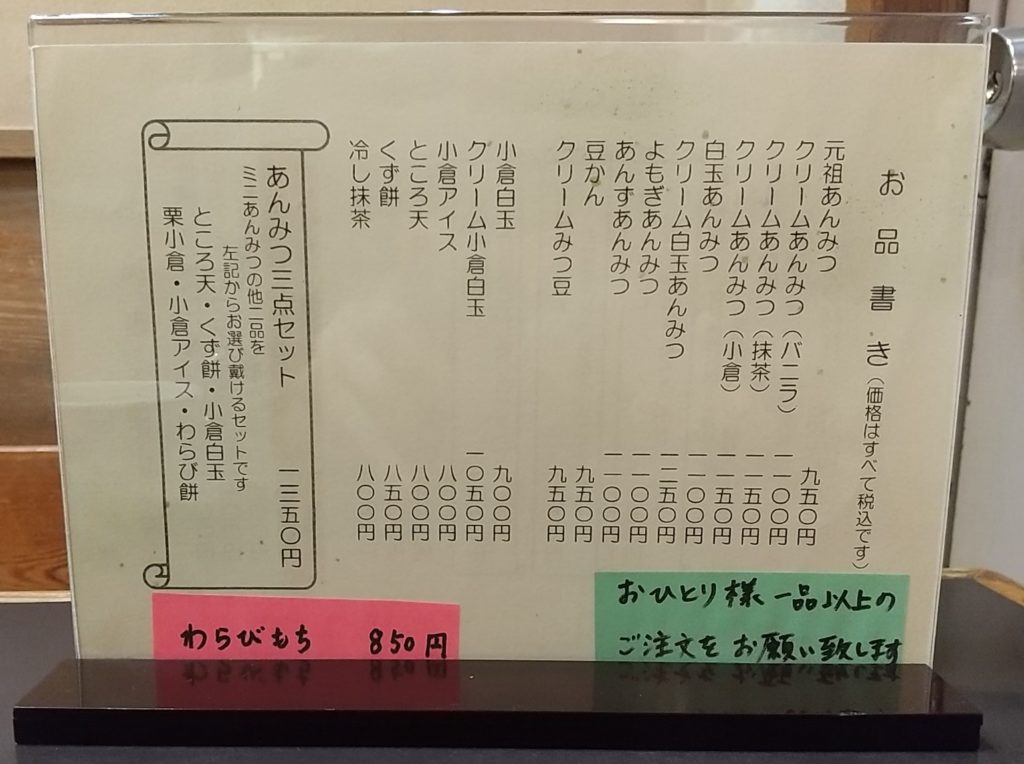 お品書き（価格はすべて税込です）
元祖あんみつ 九五〇円
クリームあんみつ（バニラ） 一一〇〇円
クリームあんみつ（抹茶） 一一五〇円
クリームあんみつ（小倉） 一一五〇円
白玉あんみつ 一一〇〇円
クリーム白玉あんみつ 一二五〇円
よもぎあんみつ 一一〇〇円
あんずあんみつ 一一〇〇円
豆かん 九五〇円
クリームみつ豆 九五〇円
小倉白玉 九〇〇円
クリーム小倉白玉 一〇五〇円
小倉アイス 八〇〇円
ところ天 八〇〇円
くず餅 八五〇円
冷し抹茶 八〇〇円
あんみつ三点セット 一三五〇円
ミニあんみつの他二品を
左記からお選び戴けるセットです
ところ天・くず餅・小倉白玉
栗小倉・小倉アイス・わらび餅
おひとり様 一品以上の
ご注文をお願い致します
わらびもち 850円